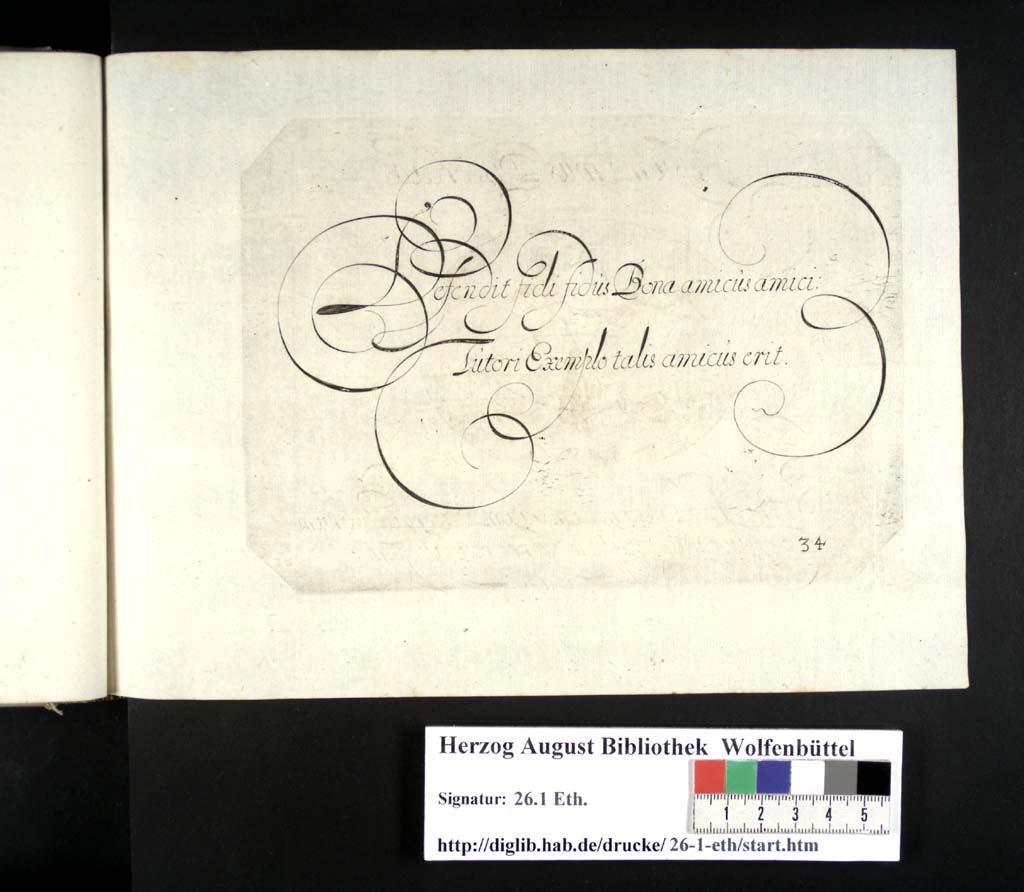 Defendit fidi fidus Bona amicus amici:
Tutori Exemplo talis amicus erit.
34
Herzog August Bibliothek Wolfenbüttel
Signatur: 26.1 Eth.
1 2 3 4 5
http://diglib.hab.de/drucke/ 26-1-eth/start.htm